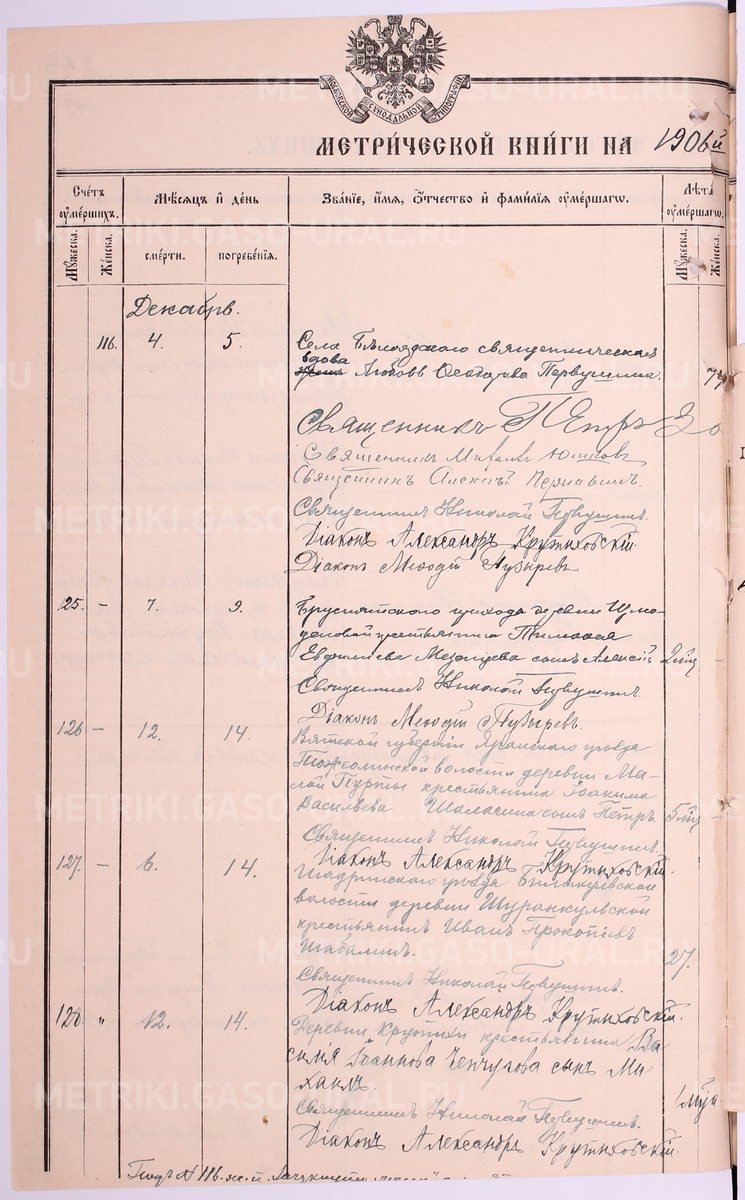 МОСКОВСКОЙ СѴНОДАЛЬНОЙ ТИПОГРАФІИ
МЕТРИ́ЧЕСКОЙ КНИ́ГИ НА 1906й
Сче́тъ ᲂумершихъ.
Мѣсяцъ и день
Званіе, имя, ѻтчество и фамилія ᲂумершагѡ.
Лѣта ᲂумершагѡ.
Мꙋжеска.
Женска.
смерти.
погребенія.
Мꙋжеска.
Женска.
Декабрь.
116. 4. 5. Села священническая
вдова
Любовь Первушина. 74
Священникъ Петръ
Священникъ Михаилъ Юшковъ
Священникъ Алексѣй
Священникъ Николай Первушинъ.
Діаконъ Александръ Крутиховскій
Діаконъ Меѳодій Пузыревъ
125. - 7. 9. Бруснятского прихода деревни
крестьянина
Мезенцева сынъ Алексій
Священникъ Николай Первушинъ.
Діаконъ Меѳодій Пузыревъ.
126 - 12. 14. Вятской губерніи Яранского уѣзда
волости деревни Ма-
лой Пурты крестьянина Іоакима
Васильева сынъ Петръ
Священникъ Николай Первушинъ.
Діаконъ Александръ Крутиховскій.
127. - 6. 14. Шадринского уѣзда
волости деревни Шуранкульской
крестьянинъ Иванъ Прокопіевъ
Шабалинъ. 27.
Священникъ Николай Первушинъ.
Діаконъ Александръ Крутиховскій.
128. " 12. 14. Деревни Крутихи крестьянина Ва
силія Іоаннова Ченчугова сынъ Ми
хаилъ.
Священникъ Николай Первушинъ.
Діаконъ Александръ Крутиховскій.
METRIKI.GASO-URAL.RU